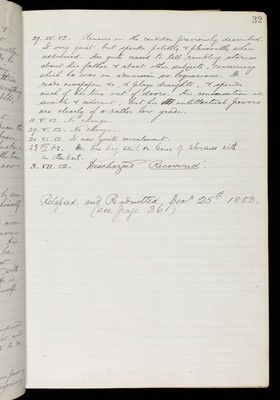 32
29. IV. 82. Remains in the condition previously described.
Is very quiet, but speaks politely & pleasantly when
addressed. Has quite ceased to tell rambling stories
about his father & about other subjects, concerning
which he was on admission so loquacious. He
reads newspapers &c, & plays draughts, & spends
much of his time out of doors. His conversation is
sensible & coherent, but his intellectual powers
are clearly of a rather low grade.
11. V. 82. No change.
29. V. 82. No change.
20. VI. 82. Is now quite convalescent.
23. VI. 82. He this day went on leave of absence with
3. VII. 82. Discharged 'Recovered'.
Relapsed and Readmitted, Decr 25th 1883.
(see page 361)